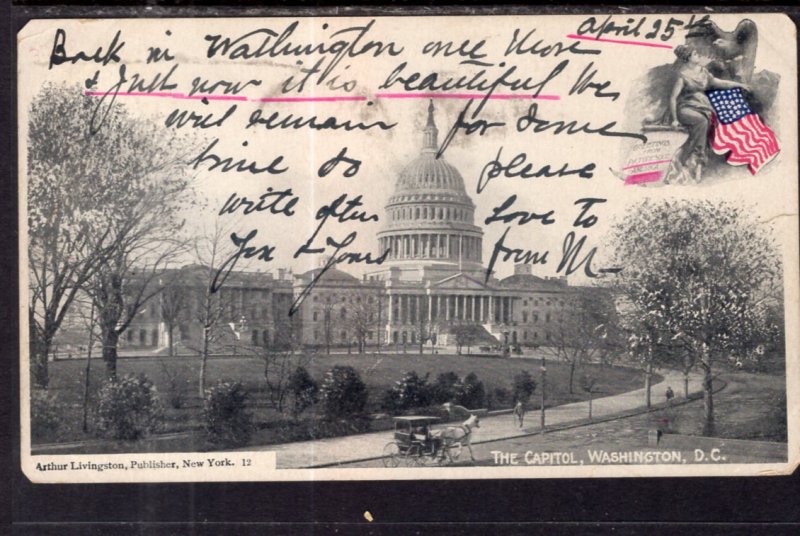 April 25th
Back in Washington once more
& Just now it is beautiful We
will remain for some
time do please
write often Love to
& from M
GREETINGS
FROM
Arthur Livingston, Publisher, New York. 12
THE CAPITOL, WASHINGTON, D.C.